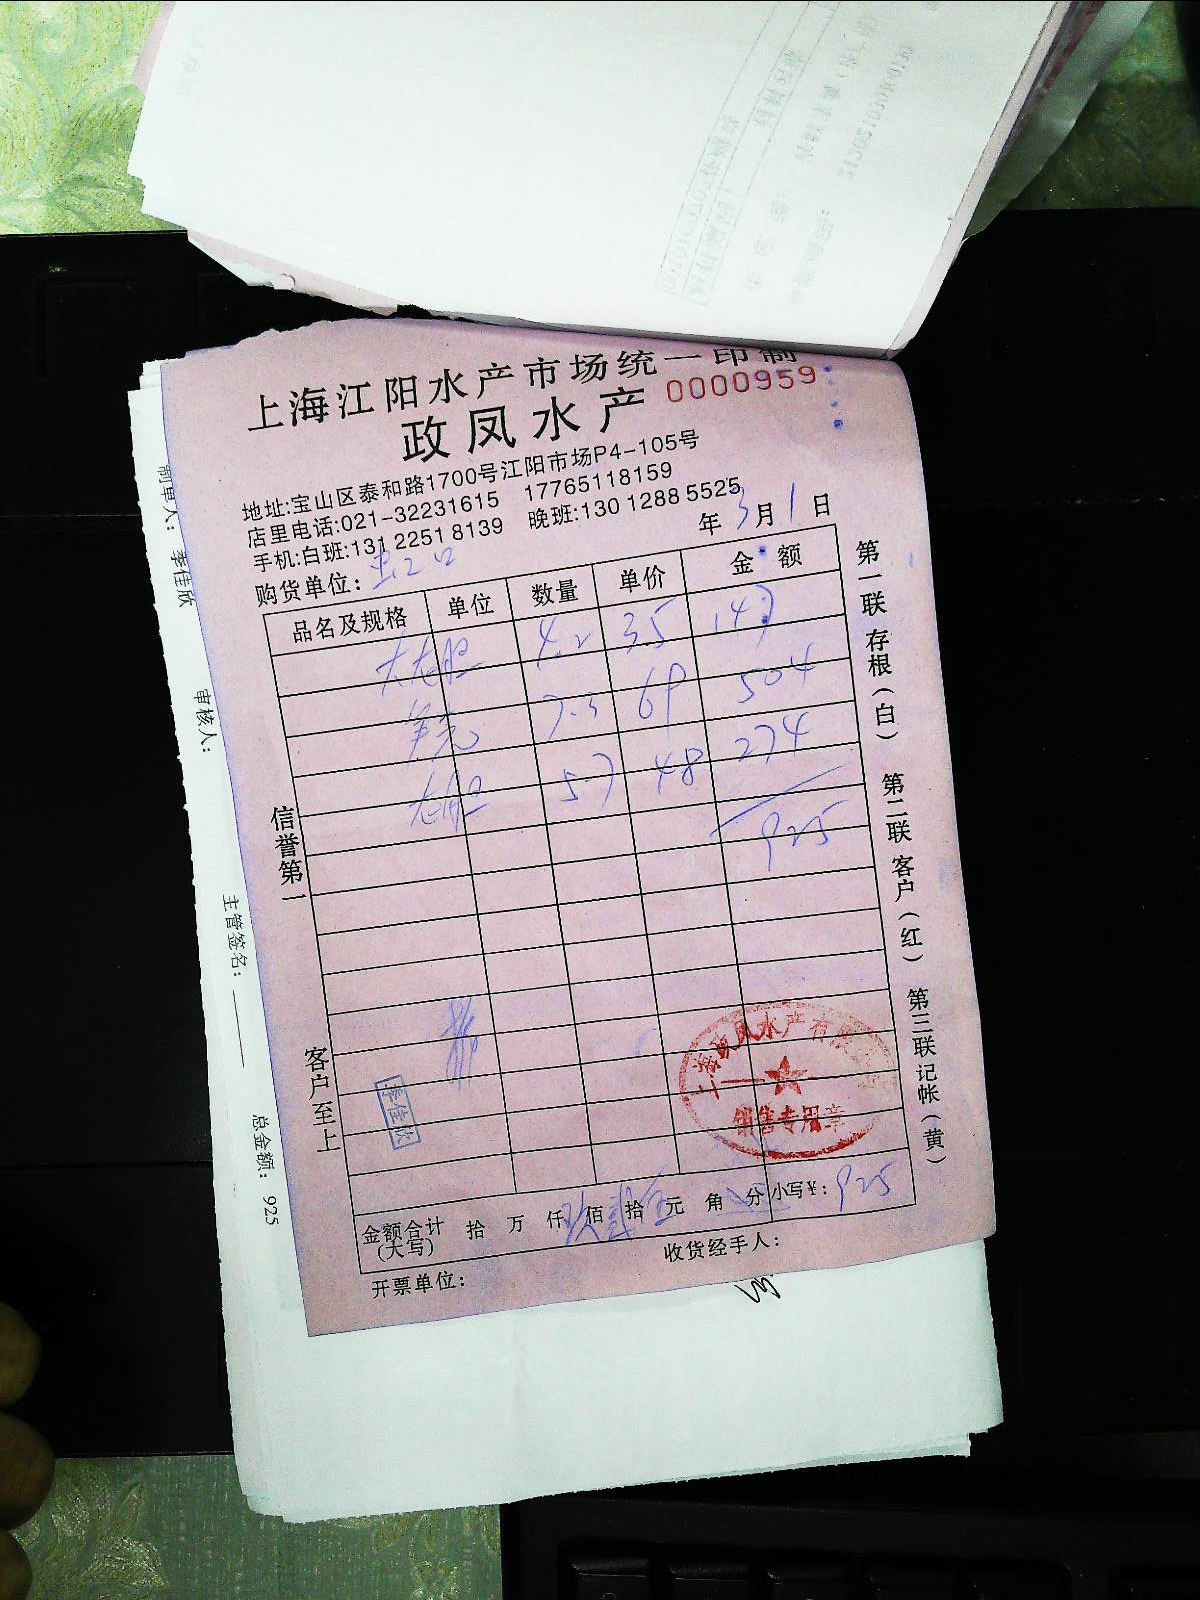 上海江阳水产市场统一印制
政凤水产 0000959
地址:宝山区泰和路1700号江阳市场P4-105号
店里电话:021-32231615 17765118159
手机:白班:131 2251 8139 晚班:130 1288 5525
年 3 月 1 日
购货单位: 虹口
品名及规格 单位 数量 单价 金额
4.2 35 147
7.3 69 504
5.7 48 274
925
信誉第一
客户至上
第一联 存根(白) 第二联 客户(红) 第三联 记帐(黄)
李佳欣
上海政凤水产有限公司
销售专用章
金额合计(大写) 拾 万 仟 玖 佰 贰 拾 伍 元 角 分 小写¥: 925
开票单位: 收货经手人:
制单人: 李佳欣
审核人:
主管签名:
总金额: 925